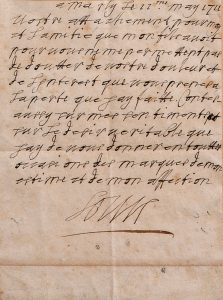 a marly Le 11me may 1711
Vostre attachement pour moy
et Lamitié que mon fils avoit
pour vous ne me permettent pas
de doutter de vostre douleur et
de Linterest que vous prenez a
La perte que j'ay faitte Contez
aussy sur mes sentiments et
sur Le desir veritable que
j'ay de vous donner en toutte
occasions des marques de mon
estime et de mon affection
Louis